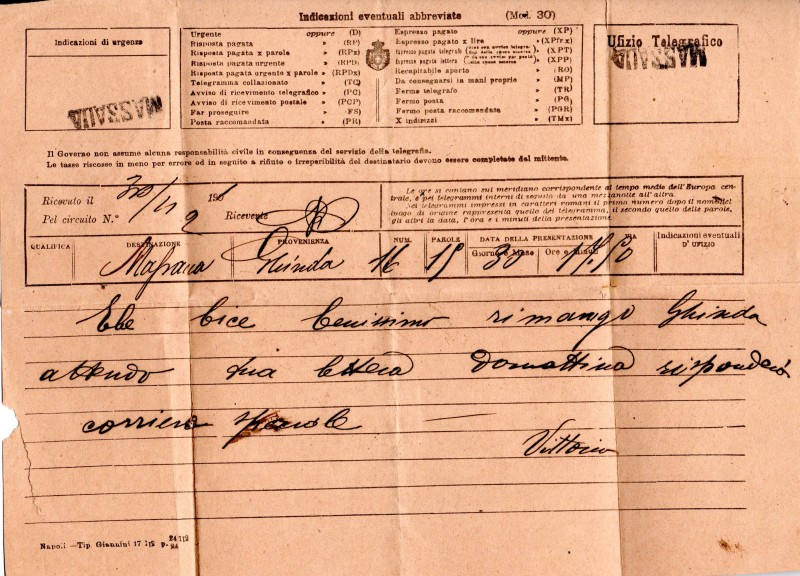 Indicazioni eventuali abbreviate (Mod. 30)
Indicazioni di urgenza
MASSAUA
Urgente oppure (D)
Risposta pagata » (RP)
Risposta pagata x parole » (RPx)
Risposta pagata urgente » (RPD)
Risposta pagata urgente x parole » (RPDx)
Telegramma collazionato » (TC)
Avviso di ricevimento telegrafico » (PC)
Avviso di ricevimento postale » (PCP)
Far proseguire » FS)
Posta raccomandata » (PR)
Espresso pagato oppure (XP)
Espresso pagato x lire » (XPfrx)
Espresso pagato telegrafo » (XPT)
Espresso pagato lettera » (XPP)
Recapitabile aperto » (RO)
Da consegnarsi in mani proprie » (MP)
Fermo telegrafo » (TR)
Fermo posta » (PG)
Fermo posta raccomandata » (PGR)
X indirizzi » (TMx)
Ufizio Telegrafico
MASSAUA
Il Governo non assume alcuna responsabilità civile in conseguenza del servizio della telegrafia.
Le tasse riscosse in meno per errore od in seguito a rifiuto o irreperibilità del destinatario devono essere completate dal mittente.
Ricevuto il 30/11 191
Pel circuito N.° 2 Ricevente
Le ore si contano sul meridiano corrispondente al tempo medio dell'Europa cen-
trale, e pei telegrammi interni di seguito da una mezzanotte all'altra.
Nei telegrammi impressi in caratteri romani il primo numero dopo il nome del
luogo di origine rappresenta quello del telegramma, il secondo quello delle parole,
gli altri la data, l'ora e i minuti della presentazione.
QUALIFICA DESTINAZIONE PROVENIENZA NUM. PAROLE DATA DELLA PRESENTAZIONE VIA Indicazioni eventuali
Giorno e Mese Ore e Minuti D' UFIZIO
Massaua Ghinda 16 15 30 17.50
Ebe bice benissimo rimango Ghinda
attendo tua lettera domattina risponderò
corriere speciale —
Vittorio
Napoli — Tip. Giannini 17